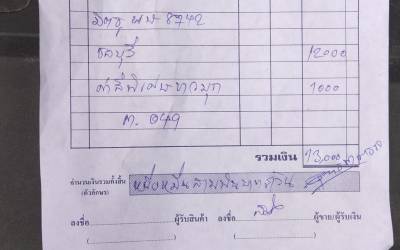 มิตซู พห 8742
ชลบุรี 12000
ค่าสีพิเศษขาวมุก 1000
ต. 049
รวมเงิน 13,000
จำนวนเงินรวมทั้งสิ้น (ตัวอักษร) หนึ่งหมื่นสามพันบาทถ้วน
ลงชื่อ ผู้รับสินค้า ลงชื่อ ผู้ขาย/ผู้รับเงิน